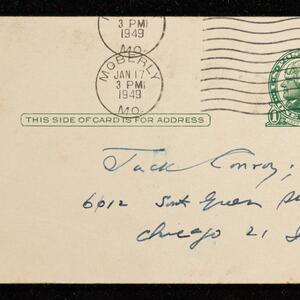 3 PM
1949
MO.
MOBERLY
JAN 17
3 PM
1949
MO.
THIS SIDE OF CARD IS FOR ADDRESS
Jack Conroy,
6012 Green
Chicago 21